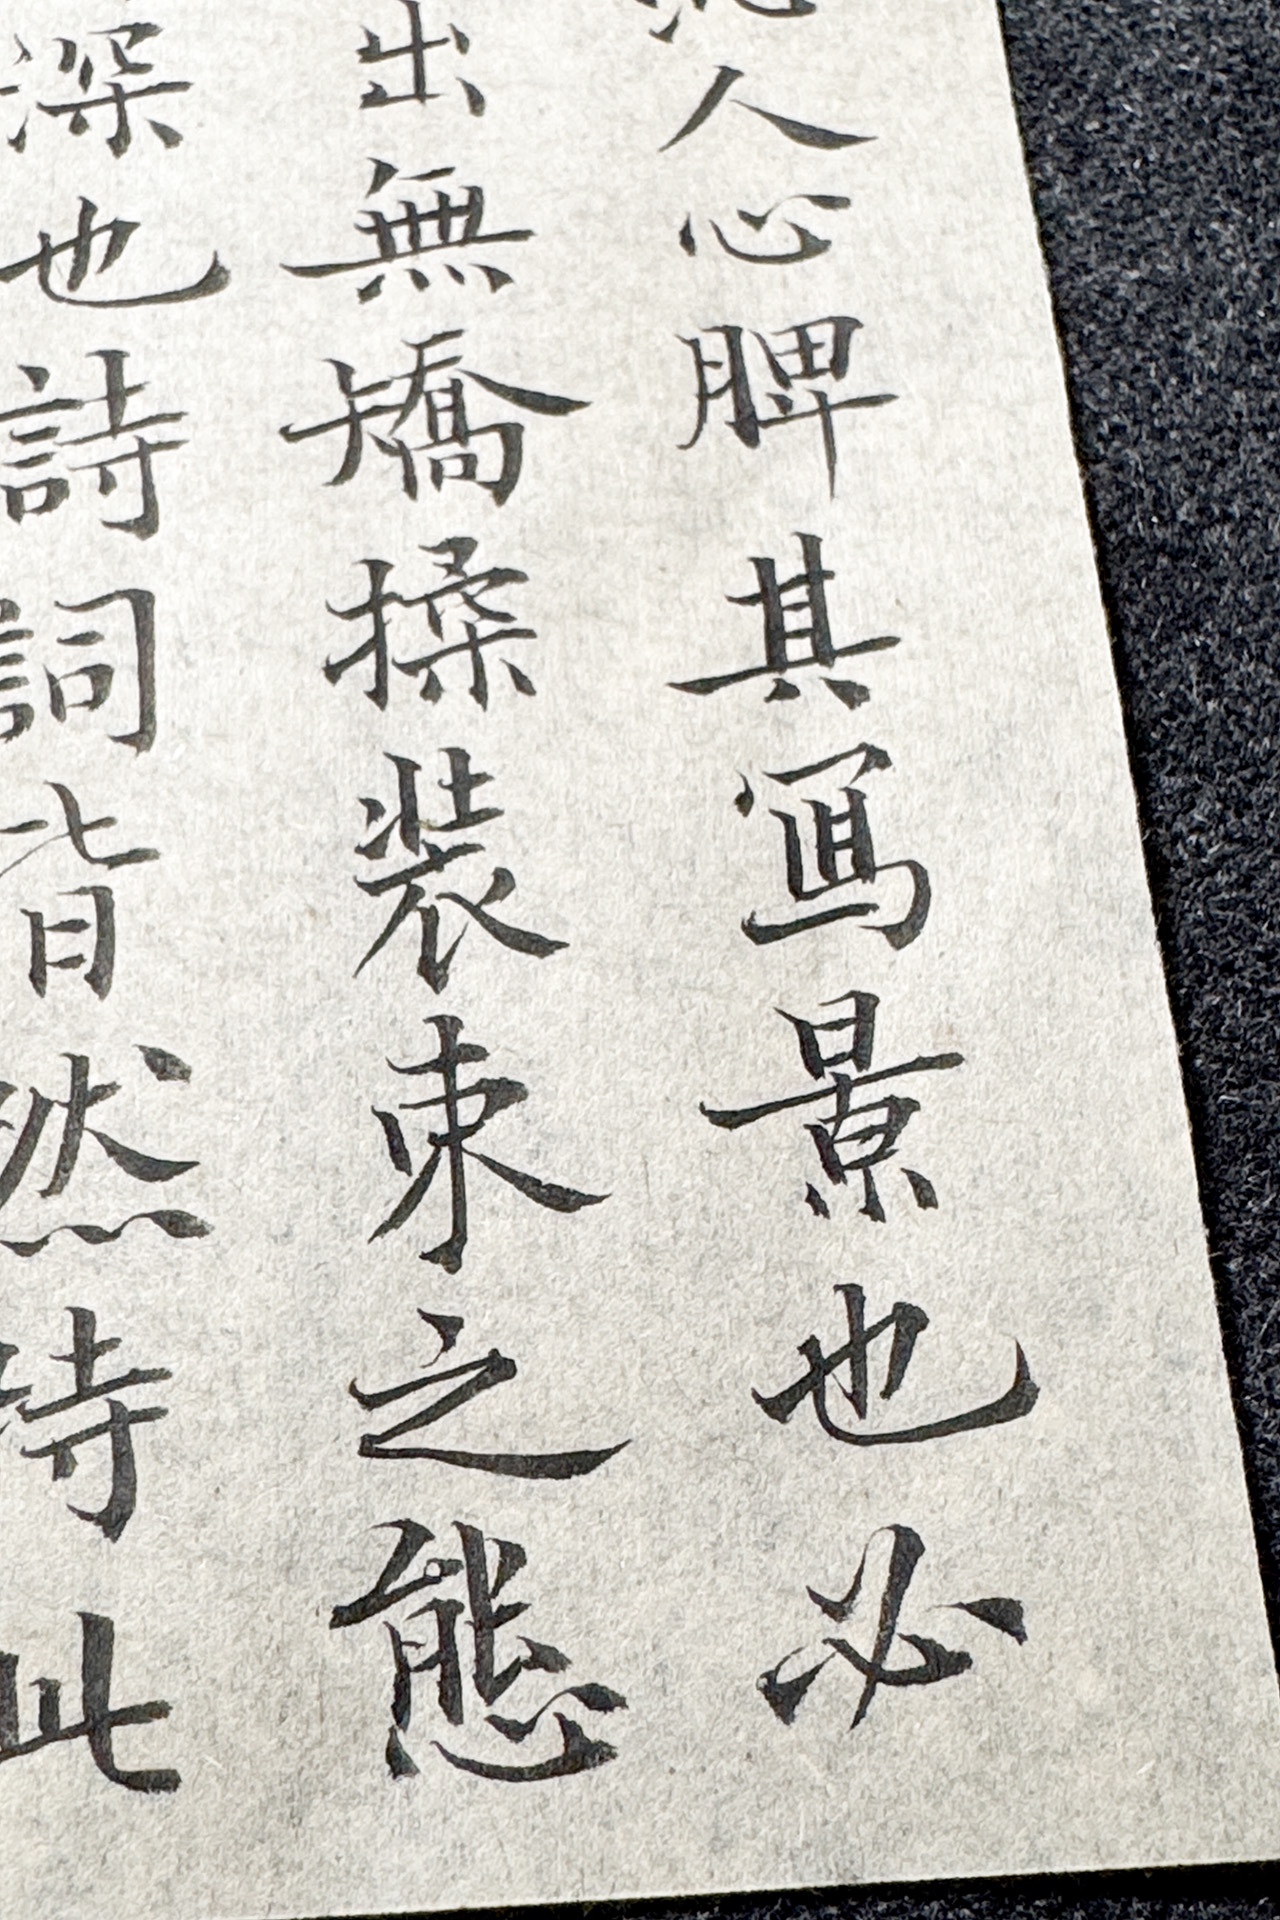 人心脾其寫景也必
出無矯揉裝束之態
深也詩詞皆然持此